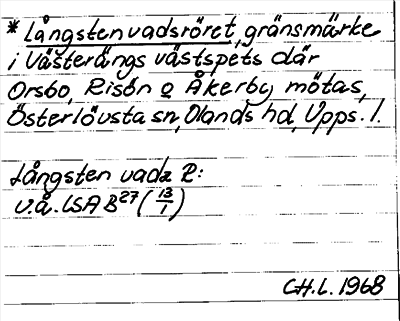 * Långsten vadsröret, gränsmärke
i Västerängs västspets där
Orsbo, Risön o Åkerby mötas,
Österlövsta sn, Olands hd, Upps. l.
Långsten vadz R:
u.å. LSA B27 (13/1)
C.H.L. 1968